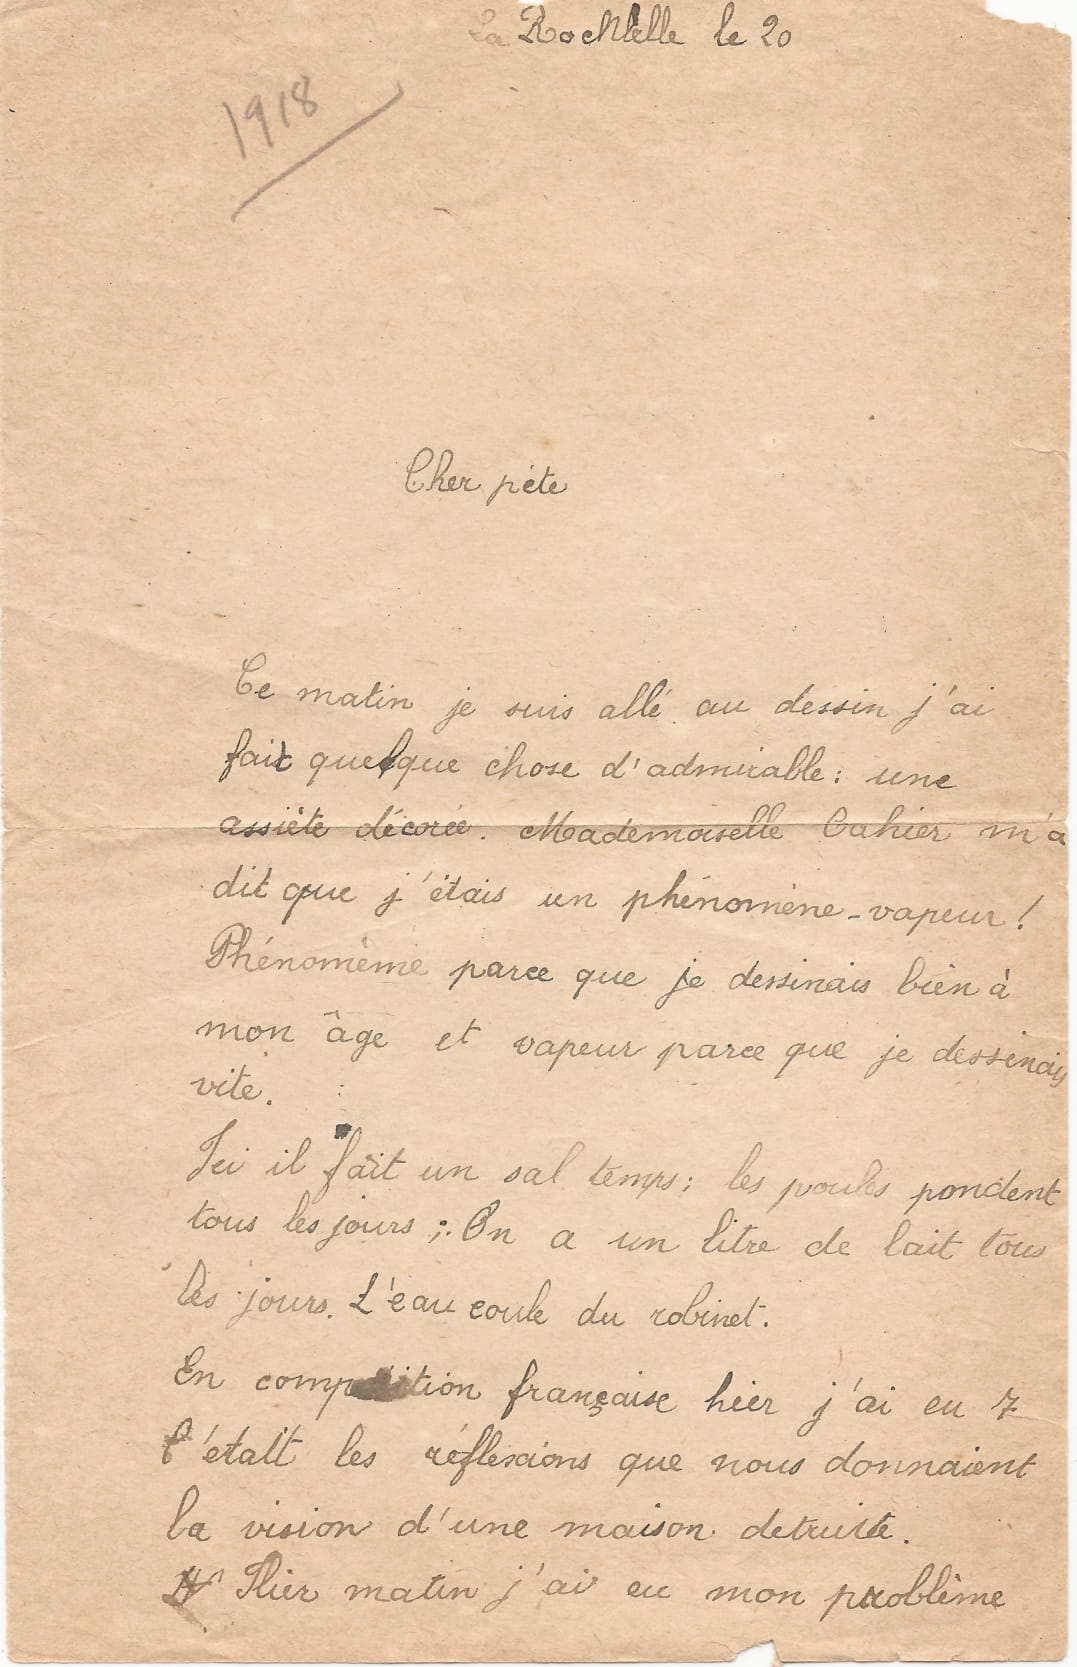 La Rochelle le 20
1918
Cher père
Ce matin je suis allé au dessin j'ai
fait quelque chose d'admirable : une
assiète décorée. Mademoiselle Cahier m'a
dit que j'étais un phénomène-vapeur !
Phénomème parce que je dessinais bien à
mon âge et vapeur parce que je dessinais
vite.
Ici il fait un sal temps ; les poules pondent
tous les jours ; On a un litre de lait tous
les jours. L'eau coule du robinet.
En composition française hier j'ai eu 7
C'était les réflexions que nous donnaient
la vision d'une maison detruite.
Hier matin j'ai eu mon problême